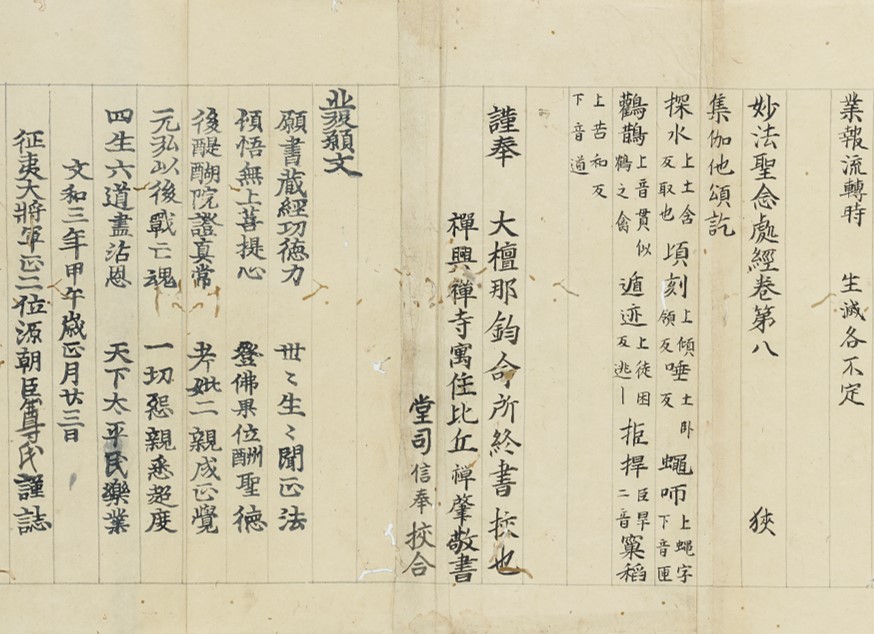 業報流轉時　生滅各不定
妙法聖念處經卷第八　狹
集伽他頌訖
探水上土含反取也 頃刻上傾領反 唾土卧反 蠅咂上蝿字下音匝
鸛鵲上音貫似鶴之禽 遁迹上徒困反逃丨 拒捍臣旱二音 窠稻
上苦和反下音道
謹奉　大檀那鈞命所終書挍也
禪興禪寺寓住比丘禅肇敬書
堂司信奉挍合
發願文
願書藏經功德力　世〻生〻聞正法
頓悟無上菩提心　登佛果位酬聖德
後醍醐院證真常　考妣二親成正覺
元弘以後戰亡魂　一切怨親悉超度
四生六道盡沾恩　天下太平民樂業
文和三年甲午歲正月廿三日
征夷大將軍正二位源朝臣尊氏謹誌